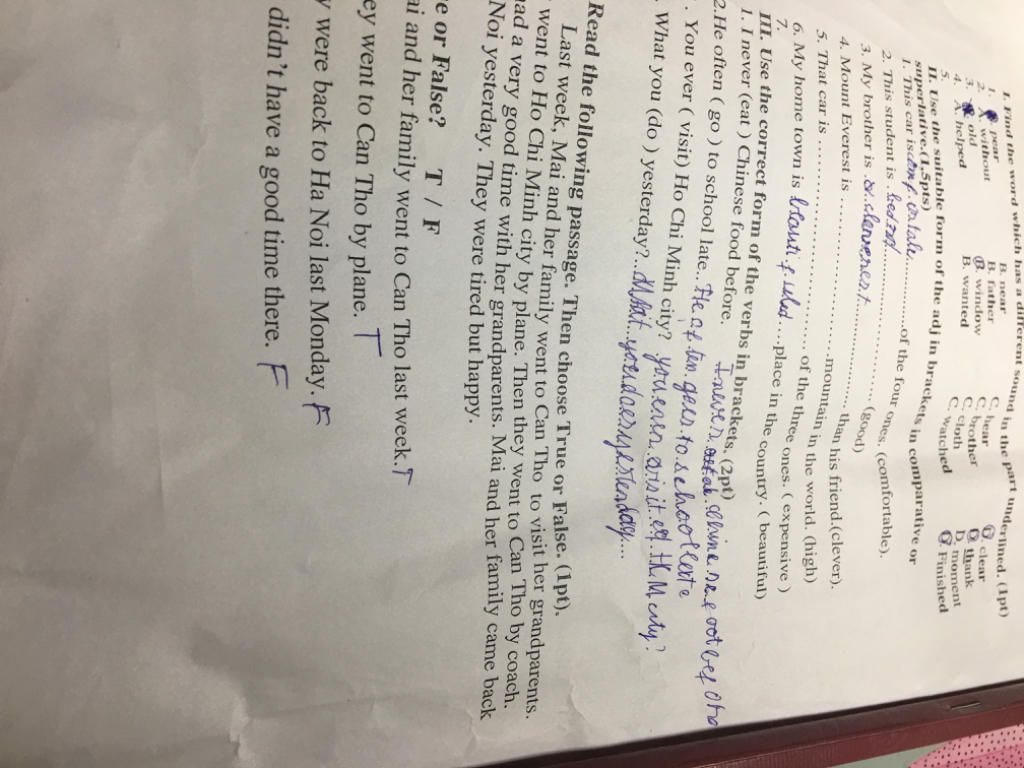 I. Find the word which has a different sound in the part underlined. (1pt)
1. A. pear B. near C. hear D. clear
2. A. without B. father C. brother D. thank
3. A. old B. window C. cloth D. moment
4. A. helped B. wanted C. watched D. Finished
5.
II. Use the suitable form of the adj in brackets in comparative or
superlative.(1,5pts)
1. This car is ............of the four ones. (comfortable).
2. This student is .................. (good)
3. My brother is ............. than his friend.(clever).
4. Mount Everest is ..................mountain in the world. (high)
5. That car is ........................ of the three ones. ( expensive )
6. My home town is ....place in the country. ( beautiful)
7.
III. Use the correct form of the verbs in brackets. (2pt)
1. I never (eat ) Chinese food before. I never
2.He often ( go ) to school late. He often goes to school late
. You ever ( visit) Ho Chi Minh city? you ever city?
. What you (do ) yesterday? What you does yesterday...
Read the following passage. Then choose True or False. (1pt).
Last week, Mai and her family went to Can Tho to visit her grandparents.
went to Ho Chi Minh city by plane. Then they went to Can Tho by coach.
had a very good time with her grandparents. Mai and her family came back
Noi yesterday. They were tired but happy.
e or False? T / F
ai and her family went to Can Tho last week. T
ey went to Can Tho by plane. T
y were back to Ha Noi last Monday. F
didn't have a good time there. F